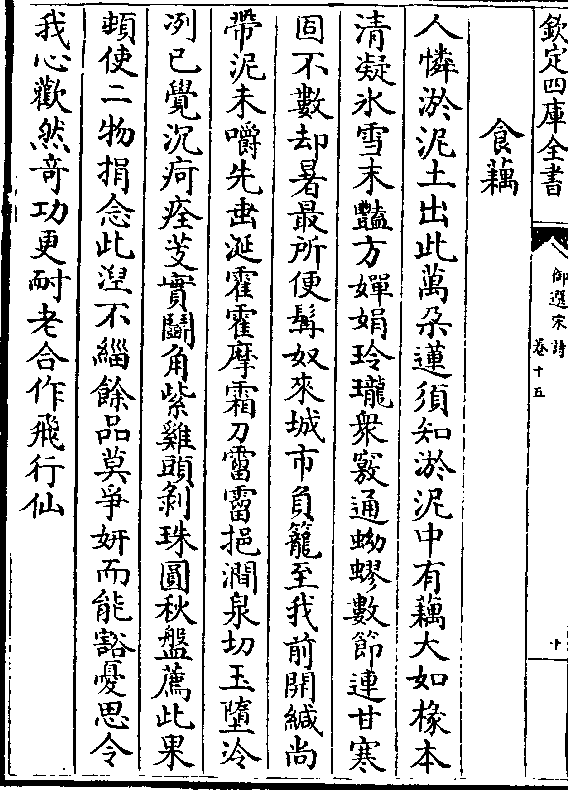 欽定四庫全書
御選宋詩
卷十五
十
食藕
人憐淤泥土出此萬朶蓮須知淤泥中有藕大如椽本
清凝氷雪末豔方嬋娟玲瓏衆竅通蚴蟉數節連甘寒
固不數却暑最所便髯奴來城市負籠至我前開緘尚
帶泥未嚼先𠹉涎霍霍摩霜刀霤霤挹澗泉切玉墮泠
冽已覺沉疴痊芰實鬬角紫雞頭剝珠圓秋盤薦此果
頼使二物捐念此涅不緇餘品莫爭妍而能豁憂思令
我心歡然竒功更耐老合作飛行仙